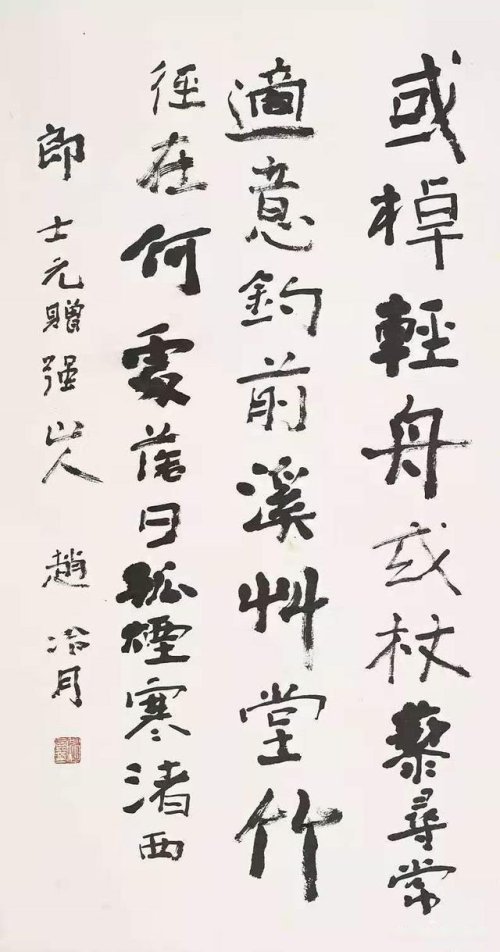 或棹輕舟或杖藜尋常
適意釣前溪艸堂竹
徑在何處落日孤煙寒渚西
郎士元贈强山人 趙冷月